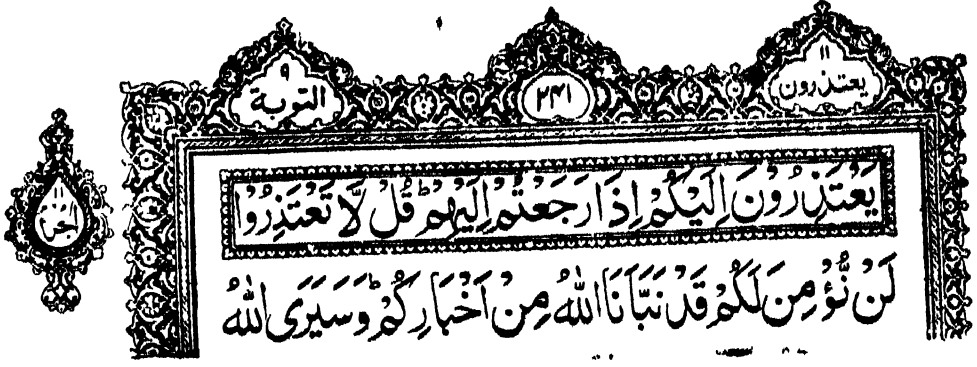 یعتذرون ۱۱
۲۴۱
التوبة ۹
الجزء ۱۱
يَعْتَذِرُوْنَ اِلَيْكُمْ اِذَا رَجَعْتُمْ اِلَيْهِمْ ؕ قُلْ لَّا تَعْتَذِرُوْا
لَنْ نُّؤْمِنَ لَكُمْ قَدْ نَبَّاَنَا اللّٰهُ مِنْ اَخْبَارِكُمْ ؕ وَسَيَرَى اللّٰهُ